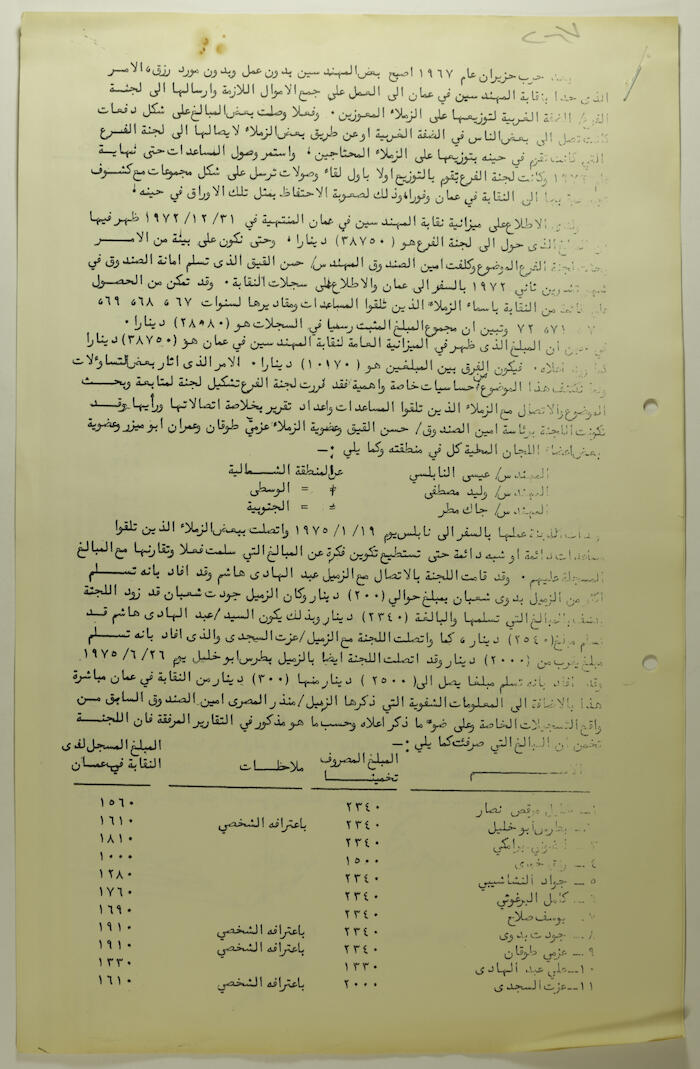 حرب حزيران عام ١٩٦٧ اصبح بعض المهندسين بدون عمل وبدون مورد رزق، الامر
الذى حدا بنقابة المهندسين في عمان الى العمل على جمع الاموال اللازمة وارسالها الى لجنة
الفرع/ الضفة الغربية لتوزيعها على الزملاء المعوزين. وفعلا وصلت بعض المبالغ على شكل دفعات
كانت تصل الى بعض الناس في الضفة الغربية او عن طريق بعض الزملاء لايصالها الى لجنة الفرع
التي كانت تقوم في حينه بتوزيعها على الزملاء المحتاجين، واستمر وصول المساعدات حتى نهاية
وكانت لجنة الفرع تقوم بالتوزيع اولا باول لقاء وصولات ترسل على شكل مجموعات مع كشوف
بها الى النقابة في عمان وفورا، وذلك لصعوبة الاحتفاظ بمثل تلك الاوراق في حينه.
الاطلاع على ميزانية نقابة المهندسين في عمان المنتهية في ٣١/١٢/١٩٧٢ ظهر فيها
الذى حول الى لجنة الفرع هو (٣٨٧٥٠) دينارا، وحتى نكون على بينة من الامر
لجنة الفرع الموضوع وكلفت امين الصندوق المهندس/ حسن القيق الذى تسلم امانة الصندوق في
تشرين ثاني ١٩٧٢ بالسفر الى عمان والاطلاع على سجلات النقابة. وقد تمكن من الحصول
على قائمة من النقابة باسماء الزملاء الذين تلقوا المساعدات ومقاديرها لسنوات ٦٧، ٦٨، ٦٩،
٧١، ٧٢ وتبين ان مجموع المبلغ المثبت رسميا في السجلات هو (٢٨٠٨٠) دينارا.
في حين أن المبلغ الذى ظهر في الميزانية العامة لنقابة المهندسين في عمان هو (٣٨٧٥٠) دينارا
اعلاه. فيكون الفرق بين المبلغين هو (١٠٦٧٠) دينارا. الامر الذى اثار بعض التساؤلات
يكتنف هذا الموضوع من حساسيات خاصة واهمية فقد قررت لجنة الفرع تشكيل لجنة لمتابعة وبحث
الموضوع والاتصال مع الزملاء الذين تلقوا المساعدات واعداد تقرير بخلاصة اتصالاتها ورأيها وقد
تكونت اللجنة برئاسة امين الصندوق/ حسن القيق وعضوية الزملاء عزمي طوقان وعمران ابو ميزر وعضوية
بعض اعضاء اللجان المحلية كل في منطقته وكما يلي :ــ
المهندس/ عيسى النابلسي عن المنطقة الشمالية
المهندس/ وليد مصطفى = = الوسطى
المهندس/ جاك مطر = = الجنوبية
اللجنة عملها بالسفر الى نابلس يوم ١٩/١/١٩٧٥ واتصلت ببعض الزملاء الذين تلقوا
مساعدات دائمة او شبه دائمة حتى تستطيع تكوين فكرة عن المبالغ التي سلمت فعلا وتقارنها مع المبالغ
المسجلة عليهم. وقد قامت اللجنة بالاتصال مع الزميل عبد الهادى هاشم وقد افاد بانه تسلم
من الزميل بدوى شعبان بمبلغ حوالي (٢٠٠) دينار وكان الزميل جودت شعبان قد زود اللجنة
بكشف بالمبالغ التي تسلمها والبالغة (٢٣٤٠) دينار وبذلك يكون السيد/ عبد الهادى هاشم قد
تسلم مبلغ (٢٥٤٠) دينار، كما واتصلت اللجنة مع الزميل/ عزت السجدى والذى افاد بانه تسلم
مبلغ يقرب من (٢٠٠٠) دينار وقد اتصلت اللجنة ايضا بالزميل بطرس ابو خليل يوم ٢٦/٦/١٩٧٥
وقد افاد بانه تسلم مبلغا يصل الى (٢٥٠٠) دينار منها (٣٠٠) دينار من النقابة في عمان مباشرة
هذا بالاضافة الى المعلومات الشفوية التي ذكرها الزميل/ منذر المصرى امين الصندوق السابق من
واقع التسجيلات الخاصة وعلى ضوء ما ذكر اعلاه وحسب ما هو مذكور في التقارير المرفقة فان اللجنة
تخمن ان المبالغ التي صرفت كما يلي :ــ
الاســـم المبلغ المصروف تخمينا ملاحظات المبلغ المسجل لدى النقابة في عمان
مرقص نصار ٢٣٤٠ ١٥٦٠
٢ــ بطرس ابو خليل ٢٣٤٠ باعترافه الشخصي ١٦١٠
٢٣٤٠ ١٨١٠
٤ــ ١٥٠٠ ١٠٠٠
٥ــ جواد النشاشيبي ٢٣٤٠ ١٢٨٠
٦ــ كامل البرغوثي ٢٣٤٠ ١٧٦٠
٧ــ يوسف صلاح ٢٣٤٠ ١٦٩٠
٨ــ جودت بدوى ٢٣٤٠ باعترافه الشخصي ١٩١٠
٩ــ عزمي طوقان ٢٣٤٠ باعترافه الشخصي ١٩١٠
١٠ــ علي عبد الهادى ١٣٣٠ ١٣٣٠
١١ــ عزت السجدى ٢٠٠٠ باعترافه الشخصي ١٦١٠